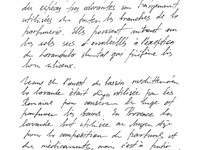 des espèces très odorantes ou largement
utilisées dans toutes les branches de la
parfumerie. Elles peuvent
les sols secs et ensoleillés à l'exception
du lavandula dentata qui préfère les
lieux
Venue de l'ouest du bassin méditerranéen
la lavande était déjà utilisée par les
Romains pour conserver le linge et
parfumer les bains. En Provence la
lavande est utilisée au Moyen âge
pour la composition de parfums et
de médicaments, mais c'est à partir